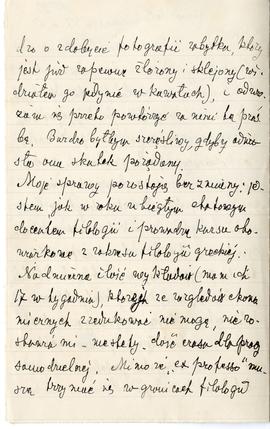 dzo o zdobycie fotografii zabytku, który
jest już zapewne złożony i sklejony (wi-
działem go jedynie w kawałkach), i odwa-
żam się przeto powtórzyć za nimi tę proś-
bę. Bardzo byłbym szczęśliwy, gdyby odnio-
sła ona skutek pożądany.
Moje sprawy pozostają bez zmiany: je-
stem jak w roku ubiegłym etatowym
docentem filologii i prowadzę kursa obo-
wiązkowe z zakresu filologii greckiej.
Nadmierna ilość wykładów (mam ich
17 w tygodniu), których ze względów ekono-
micznych zredukować nie mogę, nie po-
zostawia mi - niestety - dość czasu dla pracy
samodzielnej. Mimo że, "ex professo" mu-
szę trzymać się w granicach filologii